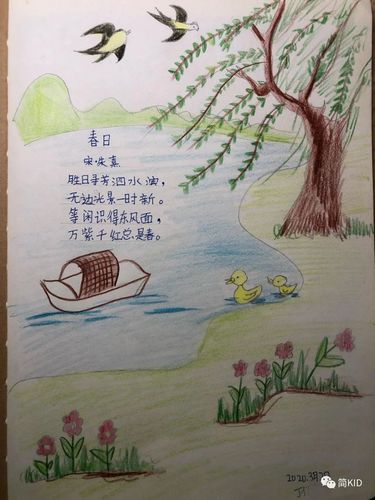 春日
宋 朱熹
胜日寻芳泗水滨，
无边光景一时新。
等闲识得东风面，
万紫千红总是春。
2020.3月
简KID